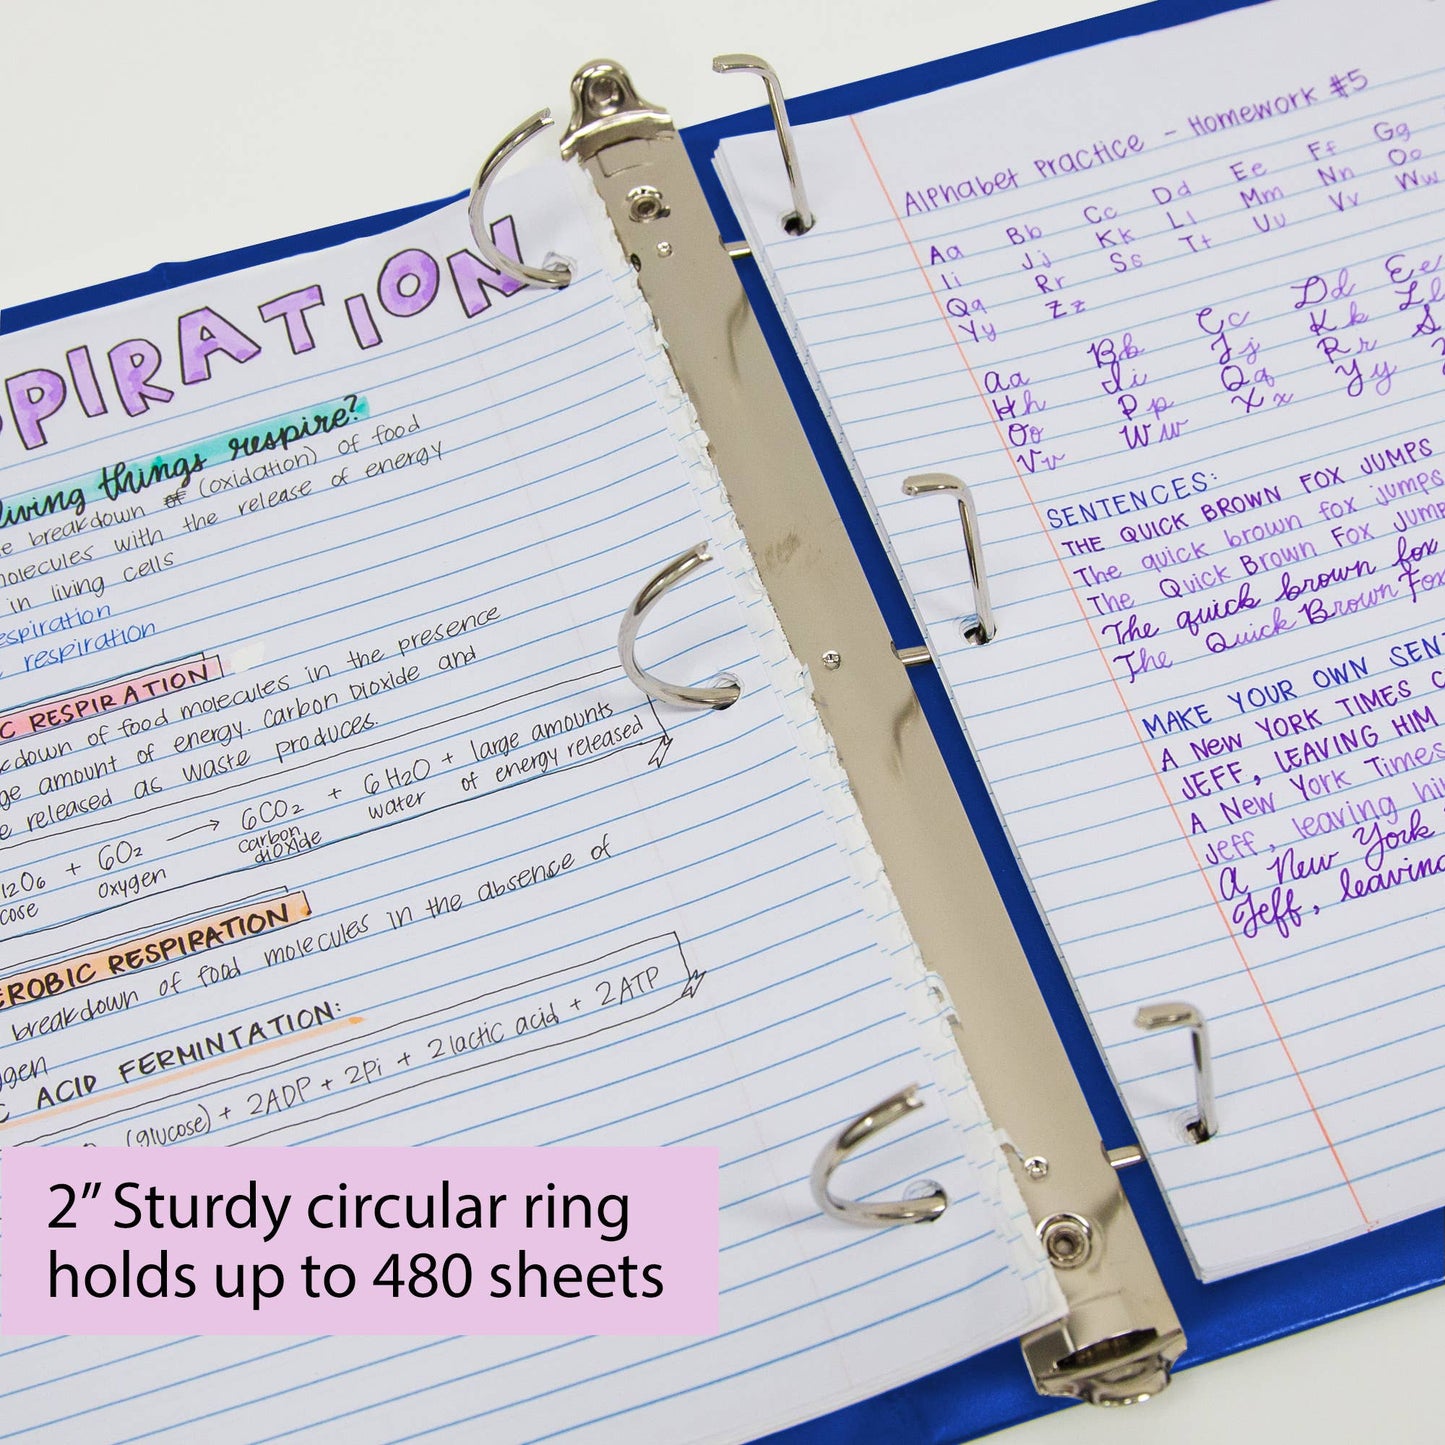 PIRATION
living things respire?
breakdown of (oxidation) of food
molecules with the release of energy
in living cells
respiration
respiration
C RESPIRATION
kdown of food molecules in the presence
ge amount of energy. Carbon Dioxide and
e released as waste produces.
12O6 + 6O2 → 6CO2 + 6H2O + large amounts
cose oxygen carbon dioxide water of energy released
EROBIC RESPIRATION
breakdown of food molecules in the absence of
ygen
C ACID FERMINTATION:
(glucose) + 2ADP + 2Pi + 2 lactic acid + 2ATP
Alphabet Practice - Homework #5
Aa Bb Cc Dd Ee Ff Gg
Ii Jj Kk Ll Mm Nn Oo
Qq Rr Ss Tt Uu Vv Ww
Yy Zz
Aa Bb Cc Dd Ee
Hh Ii Jj Kk Ll
Oo Pp Qq Rr S
Vv Ww Xx Yy
SENTENCES:
THE QUICK BROWN FOX JUMPS
The quick brown fox jumps
The Quick Brown Fox Jump
The quick brown fox
The Quick Brown Fox
MAKE YOUR OWN SEN
A NEW YORK TIMES C
JEFF, LEAVING HIM
A New York Times
Jeff, leaving hi
A New York
Jeff, leaving
2” Sturdy circular ring
holds up to 480 sheets